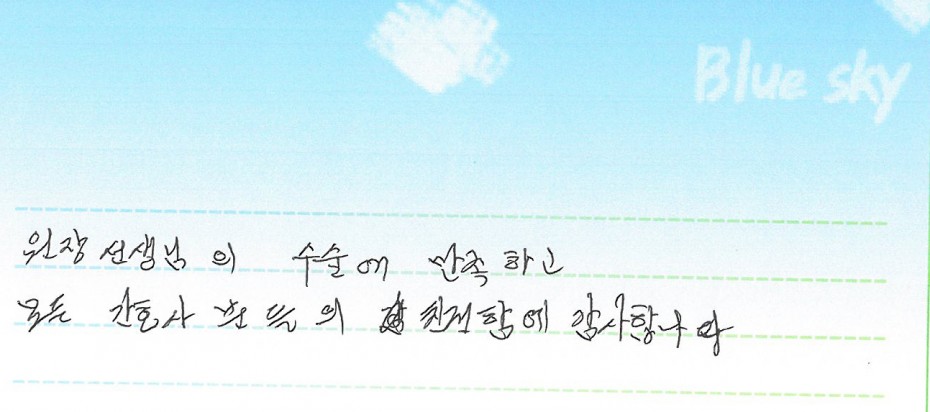 Blue sky
원장선생님의 수술에 만족하고
모든 간호사 분들의 친절함에 감사합니다